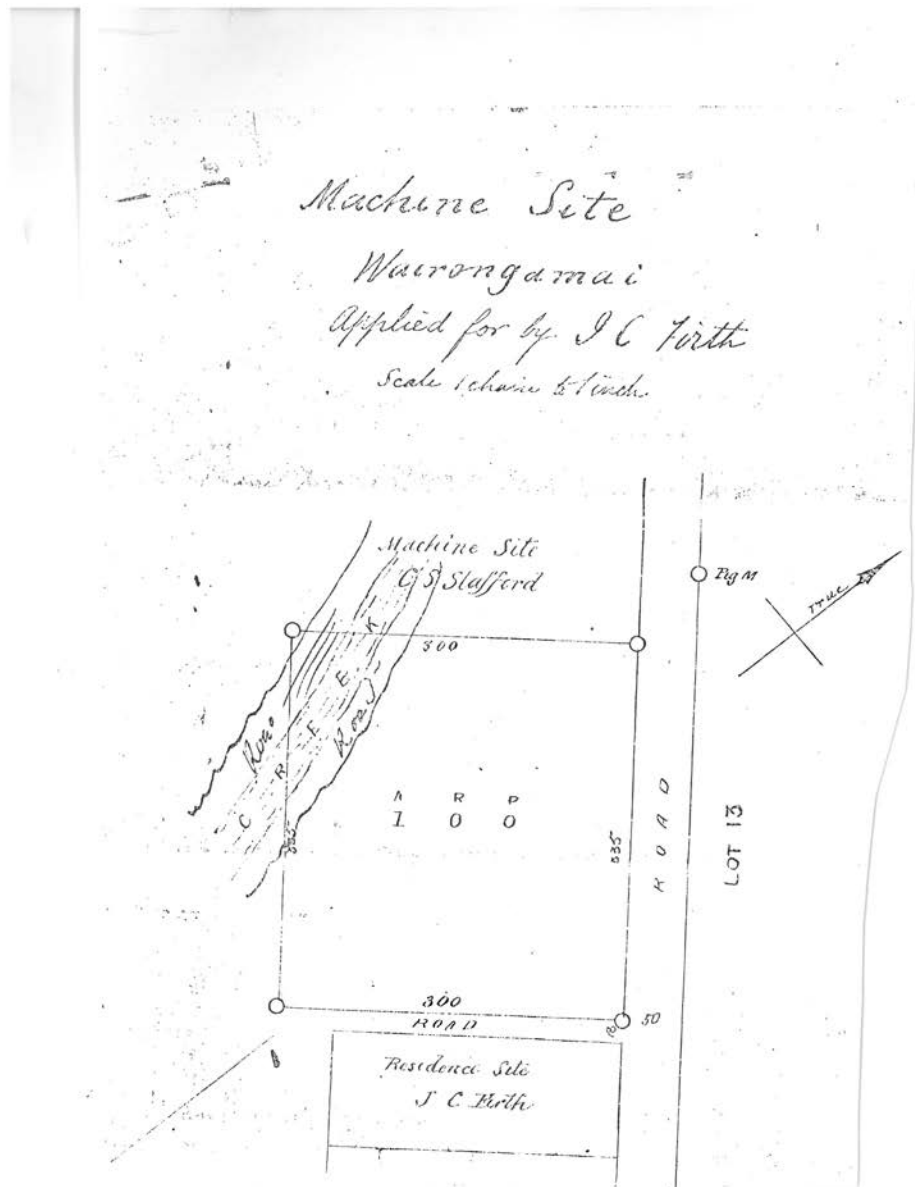 Machine Site
Wairongamai
Applied for by J C Firth
Scale 1 chain to 1 inch
Machine Site
C S Stafford
Peg M
True
300
CREEK
Road
Road
A R P
1 0 0
335
335
ROAD
LOT 13
300
ROAD
50
Residence Site
J C Firth